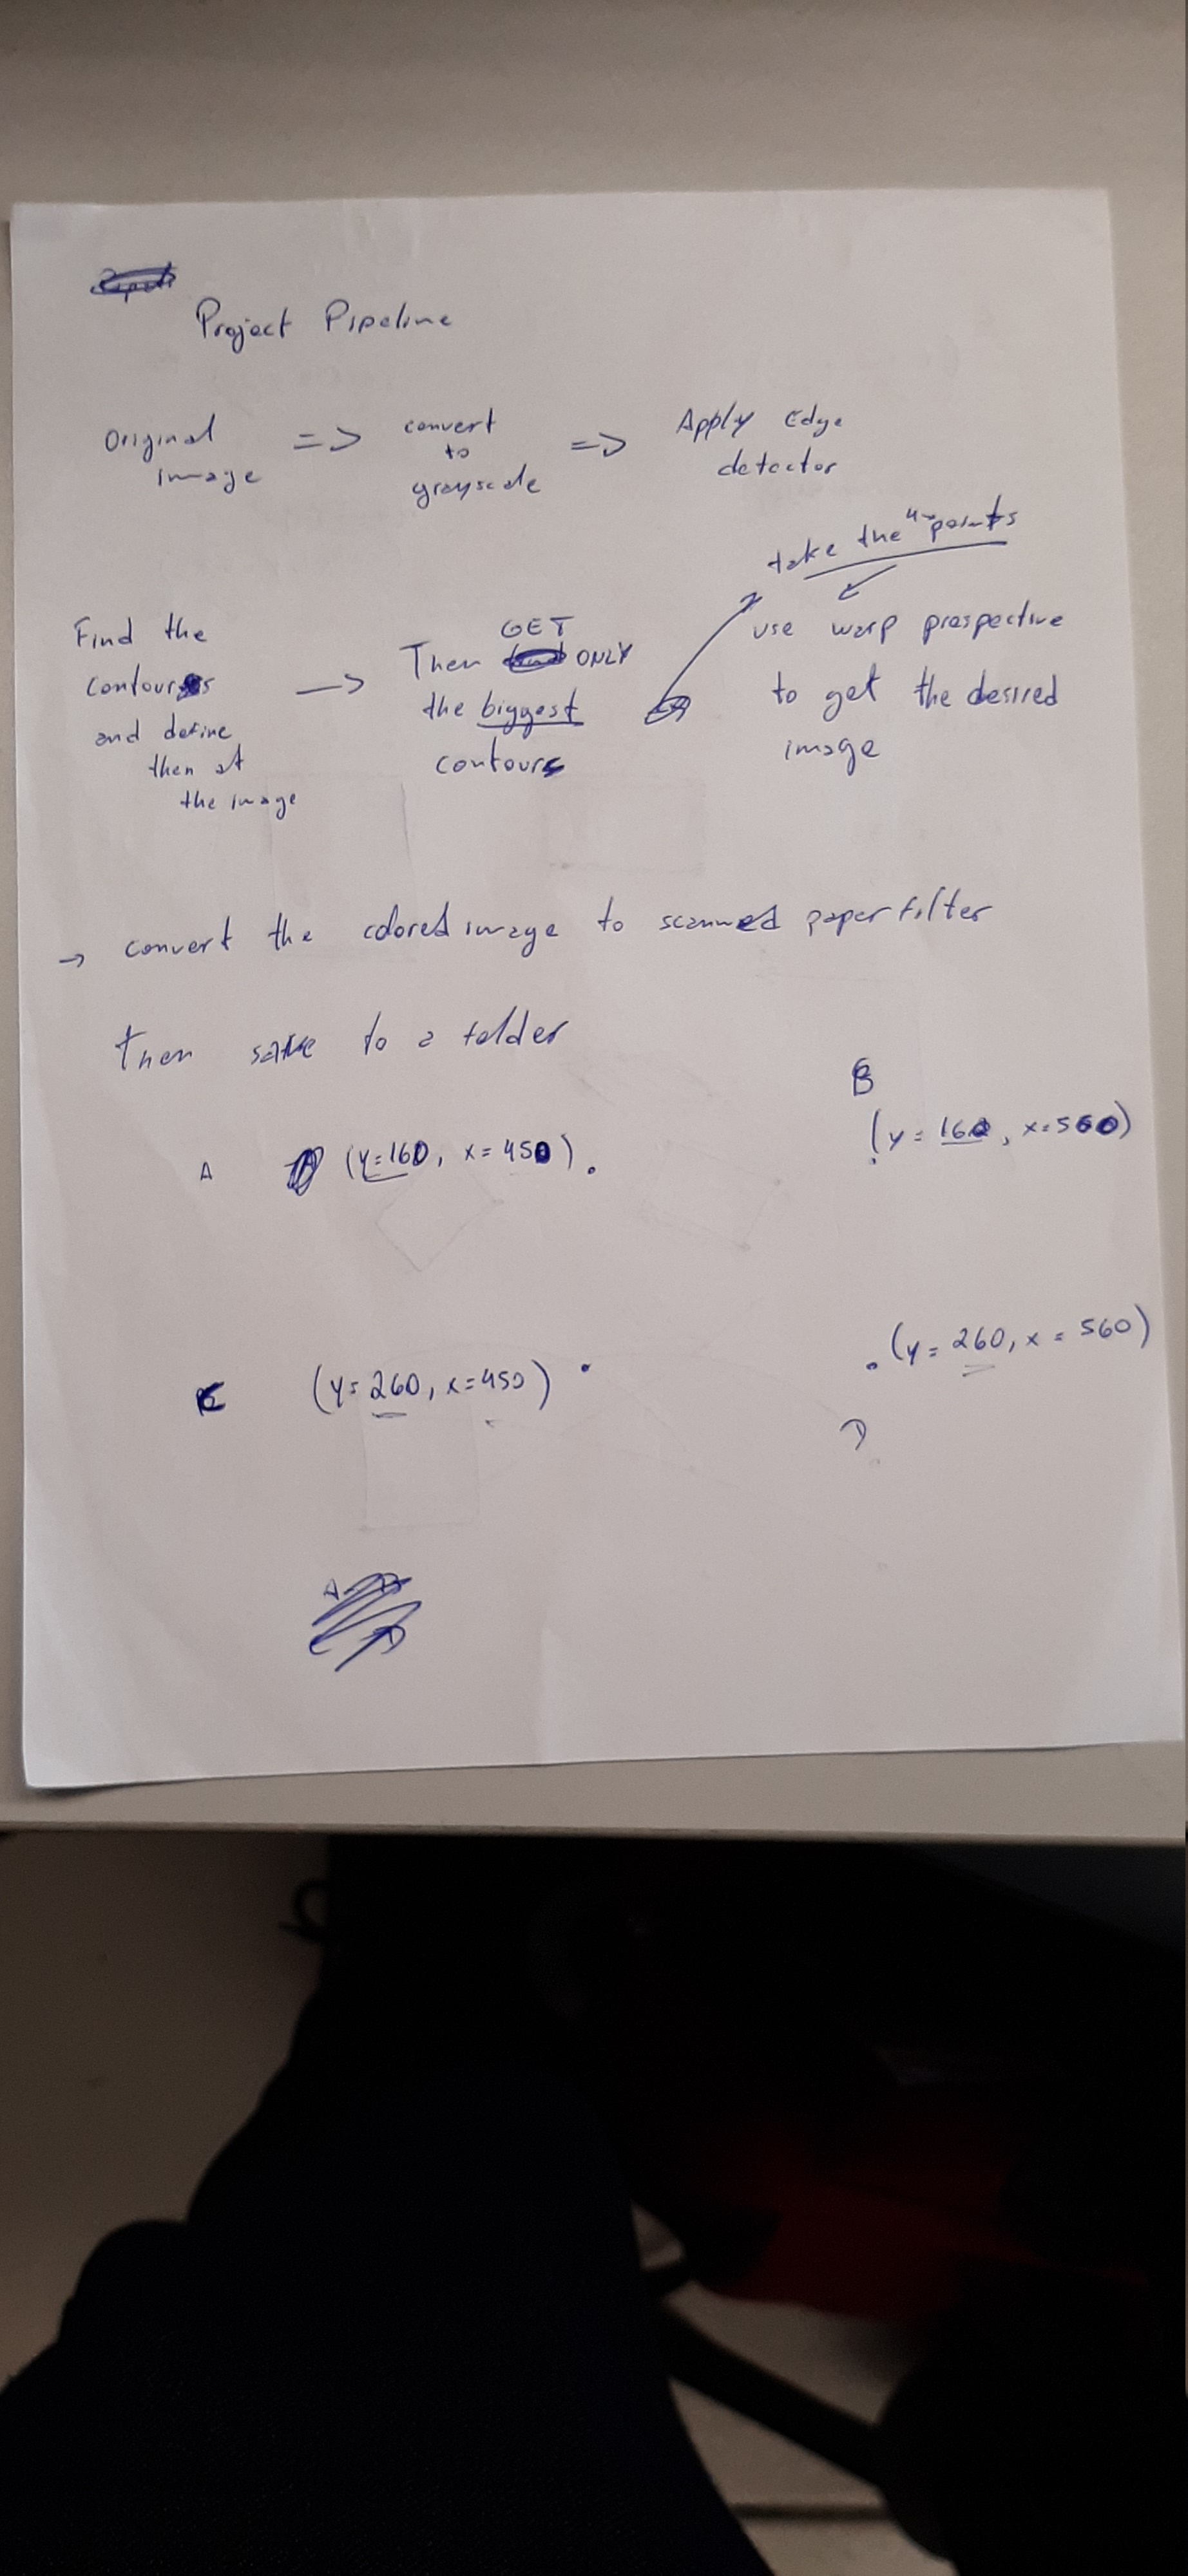 Project Pipeline
Original image => convert to grayscale => Apply Edge detector
take the 4 points
Find the contours and define then at the image -> GET Then ONLY the biggest contours
use warp prospective to get the desired image
-> convert the colored image to scanned paper filter
then save to a folder
B
A (y=160, x=450)
(y=160, x=560)
C (y=260, x=450)
(y=260, x=560)